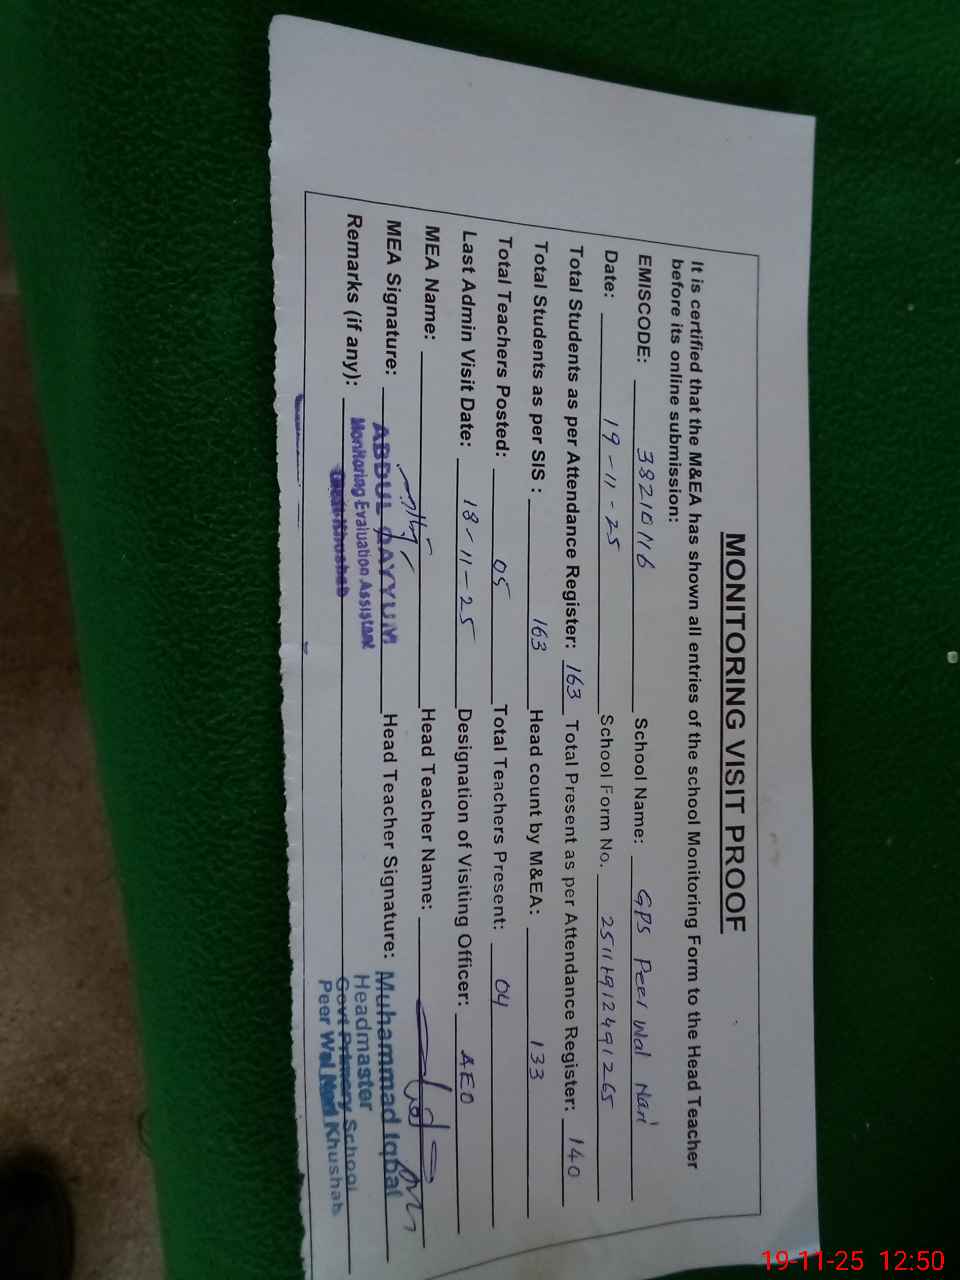 MONITORING VISIT PROOF
It is certified that the M&EA has shown all entries of the school Monitoring Form to the Head Teacher
before its online submission:
EMISCODE: 38210116 School Name: GPS Peer Wal Nari
Date: 19-11-25 School Form No. 25111912491265
Total Students as per Attendance Register: 163 Total Present as per Attendance Register: 140
Total Students as per SIS : 163 Head count by M&EA: 133
Total Teachers Posted: 05 Total Teachers Present: 04
Last Admin Visit Date: 18-11-25 Designation of Visiting Officer: AEO
MEA Name: Head Teacher Name:
MEA Signature: ABDUL QAYYUM Head Teacher Signature: Muhammad Iqbal
Remarks (if any): Monitoring Evaluation Assistant Headmaster
Khushab Govt Primary School
Peer Wal Nari Khushab
19-11-25 12:50